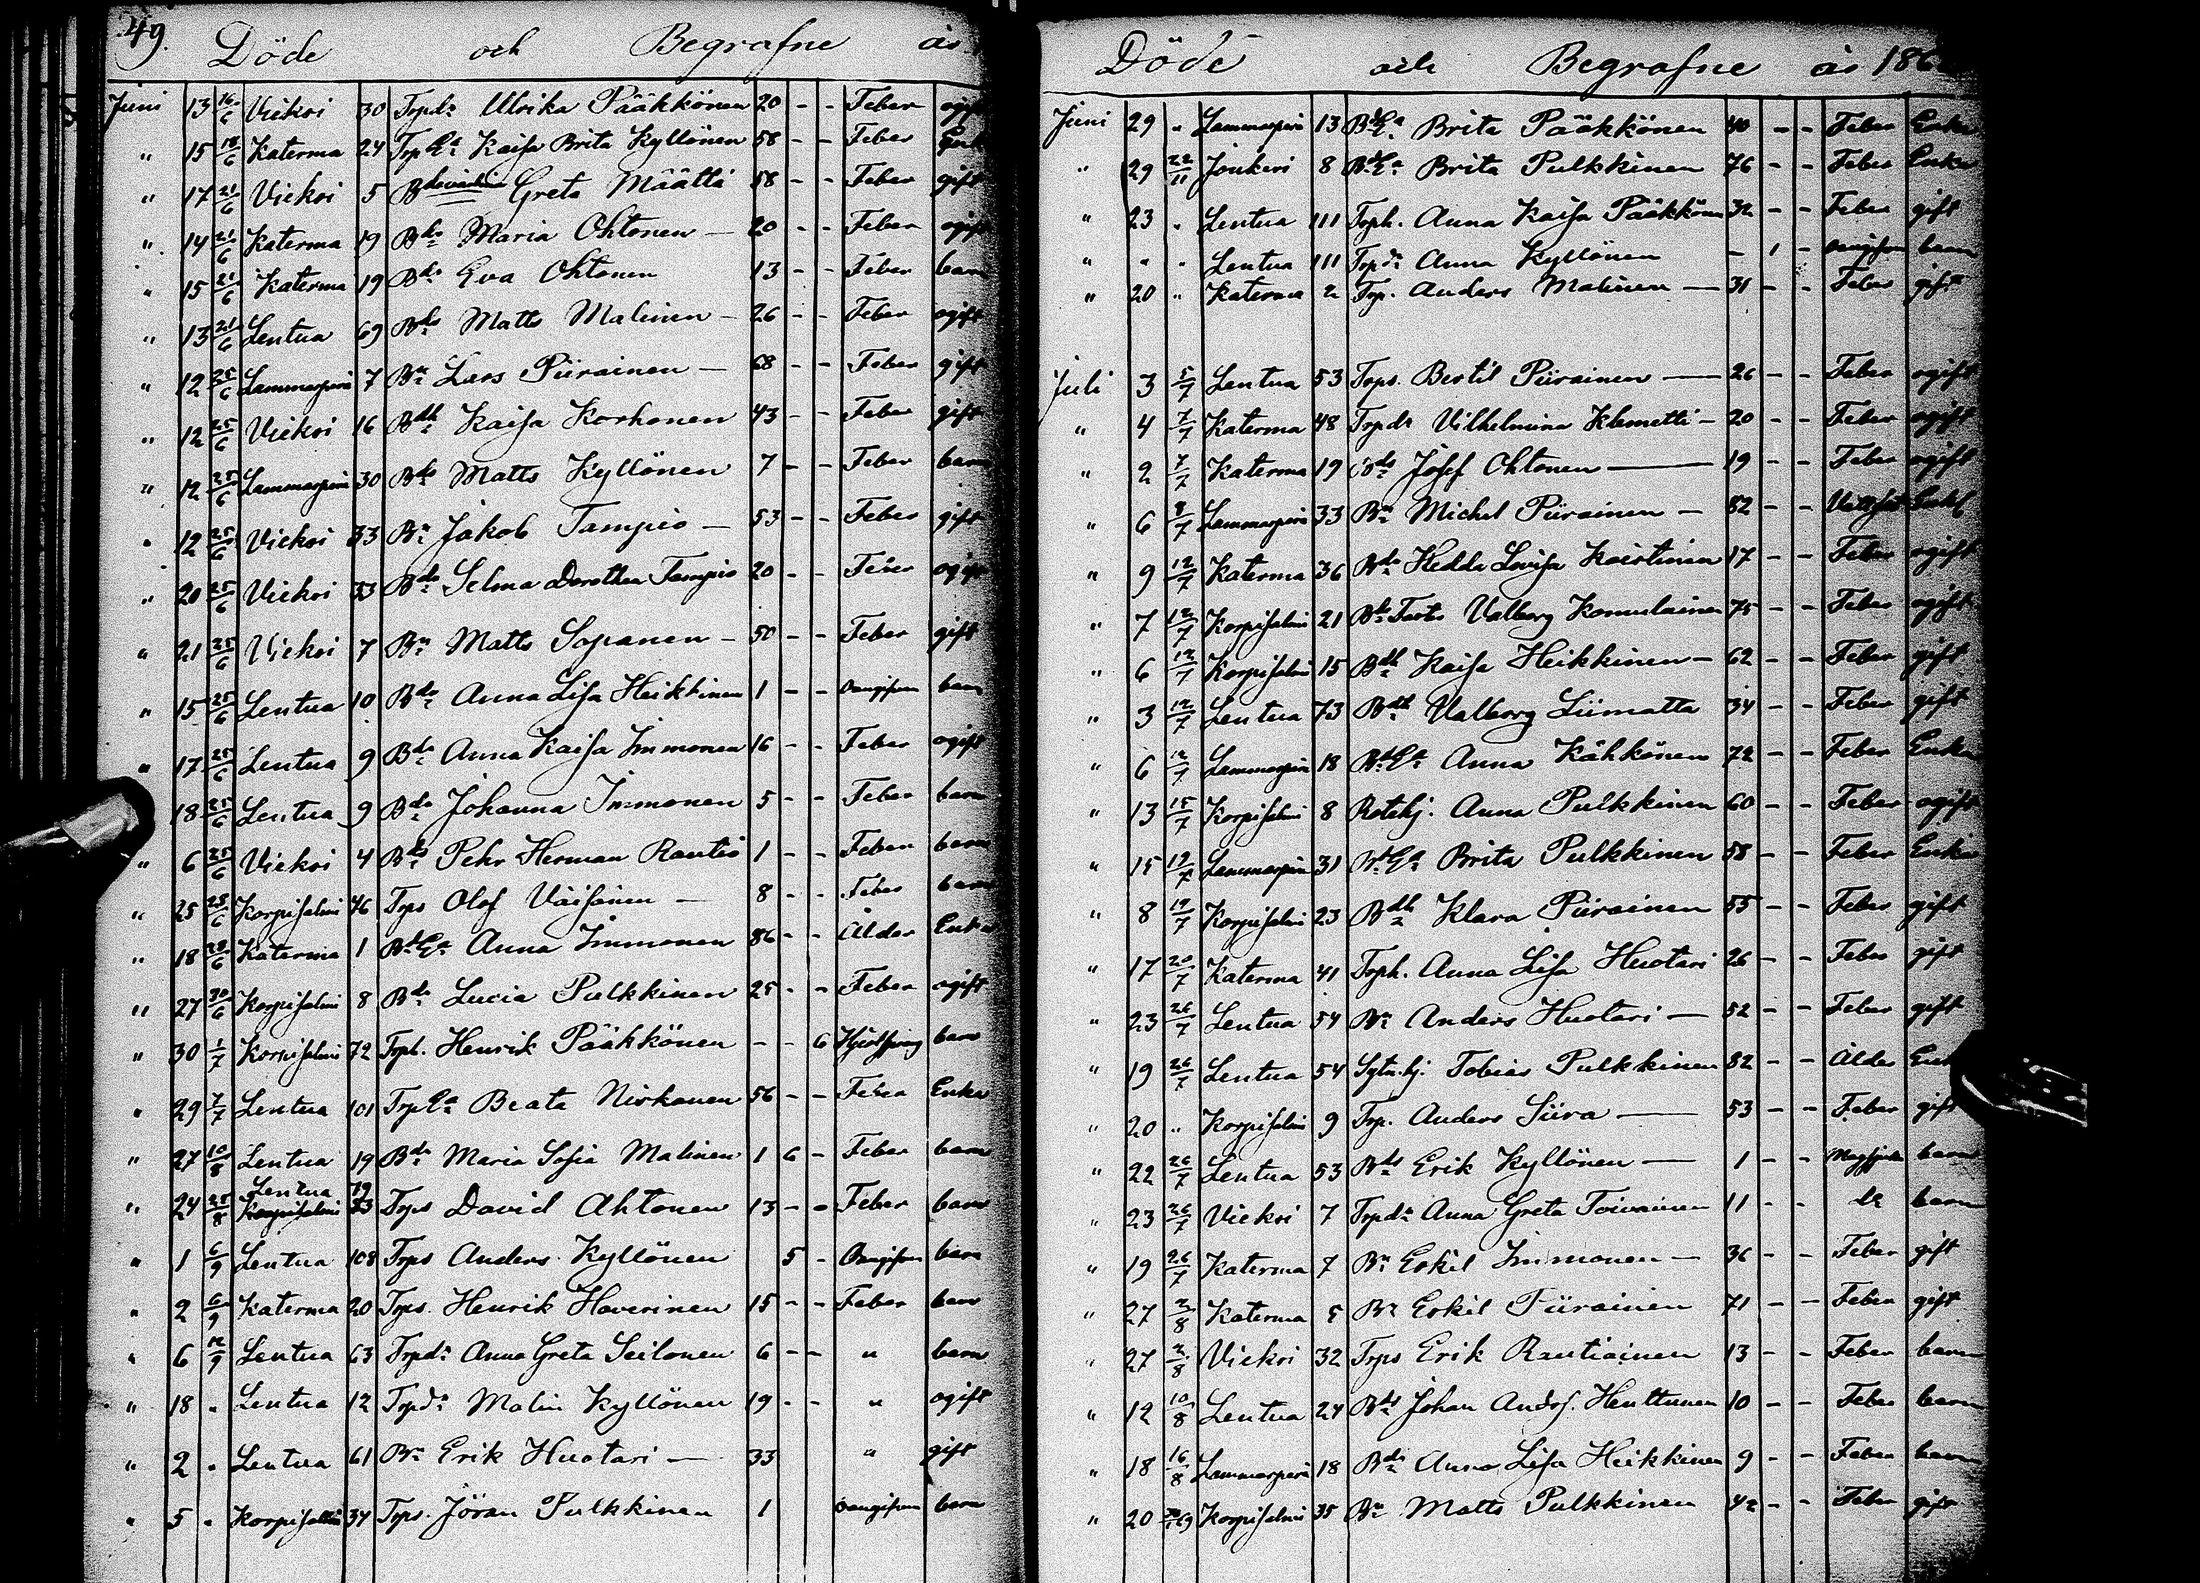 49. Döde och Begrafne år
Juni 13 16/6 Viekoi 30 Trpdr Ulrika Pääkkönen 20 - - Feber ogift
" 15 18/6 Katerma 24 Trp Ea Kaisa Brita Kyllönen 58 - - Feber Enk
" 17 21/6 Viekoi 5 Greta Määttä 58 - - Feber gift
" 14 21/6 Katerma 19 Bdr Maria Ohtonen — 20 - - Feber ogift
" 15 21/6 Katerma 19 Bdr Eva Ohtonen 13 - - Feber barn
" 13 21/6 Lentua 69 Bds Matts Malinen — 26 - - Feber ogift
" 12 25/6 Lammasperä 7 Bn Lars Piirainen — 68 - - Feber gift
" 12 25/6 Viekoi 16 Bdh Kaisa Korhonen 43 - - Feber gift
" 12 25/6 Lammasperä 30 Bds Matts Kyllönen 7 - - Feber barn
" 12 25/6 Viekoi 33 Bn Jakob Tampio — 53 - - Feber gift
" 20 25/6 Viekoi 33 Bdr Selma Dorothea Tampio 20 - - Feber ogift
" 21 25/6 Viekoi 7 Bn Matts Sopanen — 50 - - Feber gift
" 15 25/6 Lentua 10 Bdr Anna Lisa Heikkinen 1 - - Oangifven barn
" 17 25/6 Lentua 9 Bdr Anna Kaisa Immonen 16 - - Feber ogift
18 25/6 Lentua 9 Bdr Johanna Immonen 5 - - Feber barn
" 6 25/6 Viekoi 4 Bds Pehr Herman Rautio 1 - - Feber barn
" 25 28/6 Korpisalmi 46 Trps Olof Väisänen — 8 - - Feber barn
" 18 28/6 Katerma 1 Bd Ea Anna Immonen 86 - - Ålder Enka
" 27 30/6 Korpisalmi 8 Bdr Lucia Pulkkinen 25 - - Feber ogift
" 30 1/7 Korpisalmi 72 Henrik Pääkkönen - - 6 barn
" 29 7/7 Lentua 101 Trp Ea Beata Nirkonen 56 - - Feber Enka
" 27 10/8 Lentua 19 Bdr Maria Sofia Malinen 1 6 - Feber barn
Lentua 19
" 24 25/8 Korpisalmi 33 Trps David Ahtonen 13 - - Feber barn
" 1 6/9 Lentua 108 Trps Anders Kyllönen 5 - Oangifven barn
" 2 6/9 Katerma 20 Trps. Henrik Haverinen 15 - - Feber barn
" 6 12/9 Lentua 63 Trpdr Anna Greta Seilonen 6 - - " barn
" 18 " Lentua 12 Trpdr Malin Kyllönen 19 - - " ogift
" 2 " Lentua 61 Bn Erik Huotari — 33 " gift
" 5 " Korpisalmi 34 Trps. Jöran Pulkkinen 1 Oangifven barn
Döde och Begrafne år 186
Juni 29 " Lammasperä 13 Bd Ea Brita Pääkkönen 40 - - Feber Enka
" 29 22/11 Jonkeri 8 Bd Ea Brita Pulkkinen 76 - - Feber Enka
" 23 " Lentua 111 Trph. Anna Kaisa Pääkkönen 32 - - Feber gift
" " " Lentua 111 Trpdr Anna Kyllönen - 1 - Oangifven barn
" 20 " Katerma 2 Trp. Anders Malinen — 31 - - Feber gift
Juli 3 5/7 Lentua 53 Trps. Bertil Piirainen — 26 - - Feber ogift
" 4 7/7 Katerma 48 Trpdr Vilhelmina Klemetti — 20 - - Feber ogift
" 2 7/7 Katerma 19 Bds Josef Ohtonen — 19 - - Feber ogift
" 6 8/7 Lammasperä 33 Bn Michel Piirainen — 82 - - Enkl
" 9 12/7 Katerma 36 Bdr Hedda Lovisa Koistinen 17 - - Feber ogift
" 7 12/7 Korpisalmi 21 Valborg Komulainen 75 - - Feber ogift
" 6 12/7 Korpisalmi 15 Bdh Kaisa Heikkinen — 62 - - Feber gift
" 3 12/7 Lentua 73 Bdh Valborg Liimatta 34 - - Feber gift
" 6 12/7 Lammasperä 18 Bd Ea Anna Kähkönen 72 - - Feber Enka
" 13 15/7 Korpisalmi 8 Rotehj. Anna Pulkkinen 60 - - Feber ogift
" 15 19/7 Lammasperä 31 Bd Ea Brita Pulkkinen 58 - - Feber Enka
" 8 19/7 Korpisalmi 23 Bdh Klara Piirainen 55 - - Feber gift
" 17 20/7 Katerma 41 Trph. Anna Lisa Huotari 26 - - Feber gift
" 23 26/7 Lentua 54 Bn Anders Huotari — 52 - - Feber gift
" 19 26/7 Lentua 54 Sytn.hj. Tobias Pulkkinen 82 - - Ålder Enk
" 20 " Korpisalmi 9 Trp. Anders Siira — 53 - - Feber gift
" 22 26/7 Lentua 53 Bds Erik Kyllönen — 1 - - barn
" 23 26/7 Viekoi 7 Trpdr Anna Greta Toivainen 11 - - barn
" 19 26/7 Katerma 7 Bn Eskil Immonen — 36 - - Feber gift
" 27 2/8 Katerma 5 Bn Eskil Piirainen 71 - - Feber gift
" 27 2/8 Viekoi 32 Trps Erik Rautiainen 13 - - Feber barn
" 12 10/8 Lentua 24 Bds Johan Andrs. Henttunen 10 - - Feber barn
" 18 16/8 Lammasperä 18 Bdr Anna Lisa Heikkinen 9 - - Feber barn
" 20 Korpisalmi 35 Bn Matts Pulkkinen 42 - - Feber gift